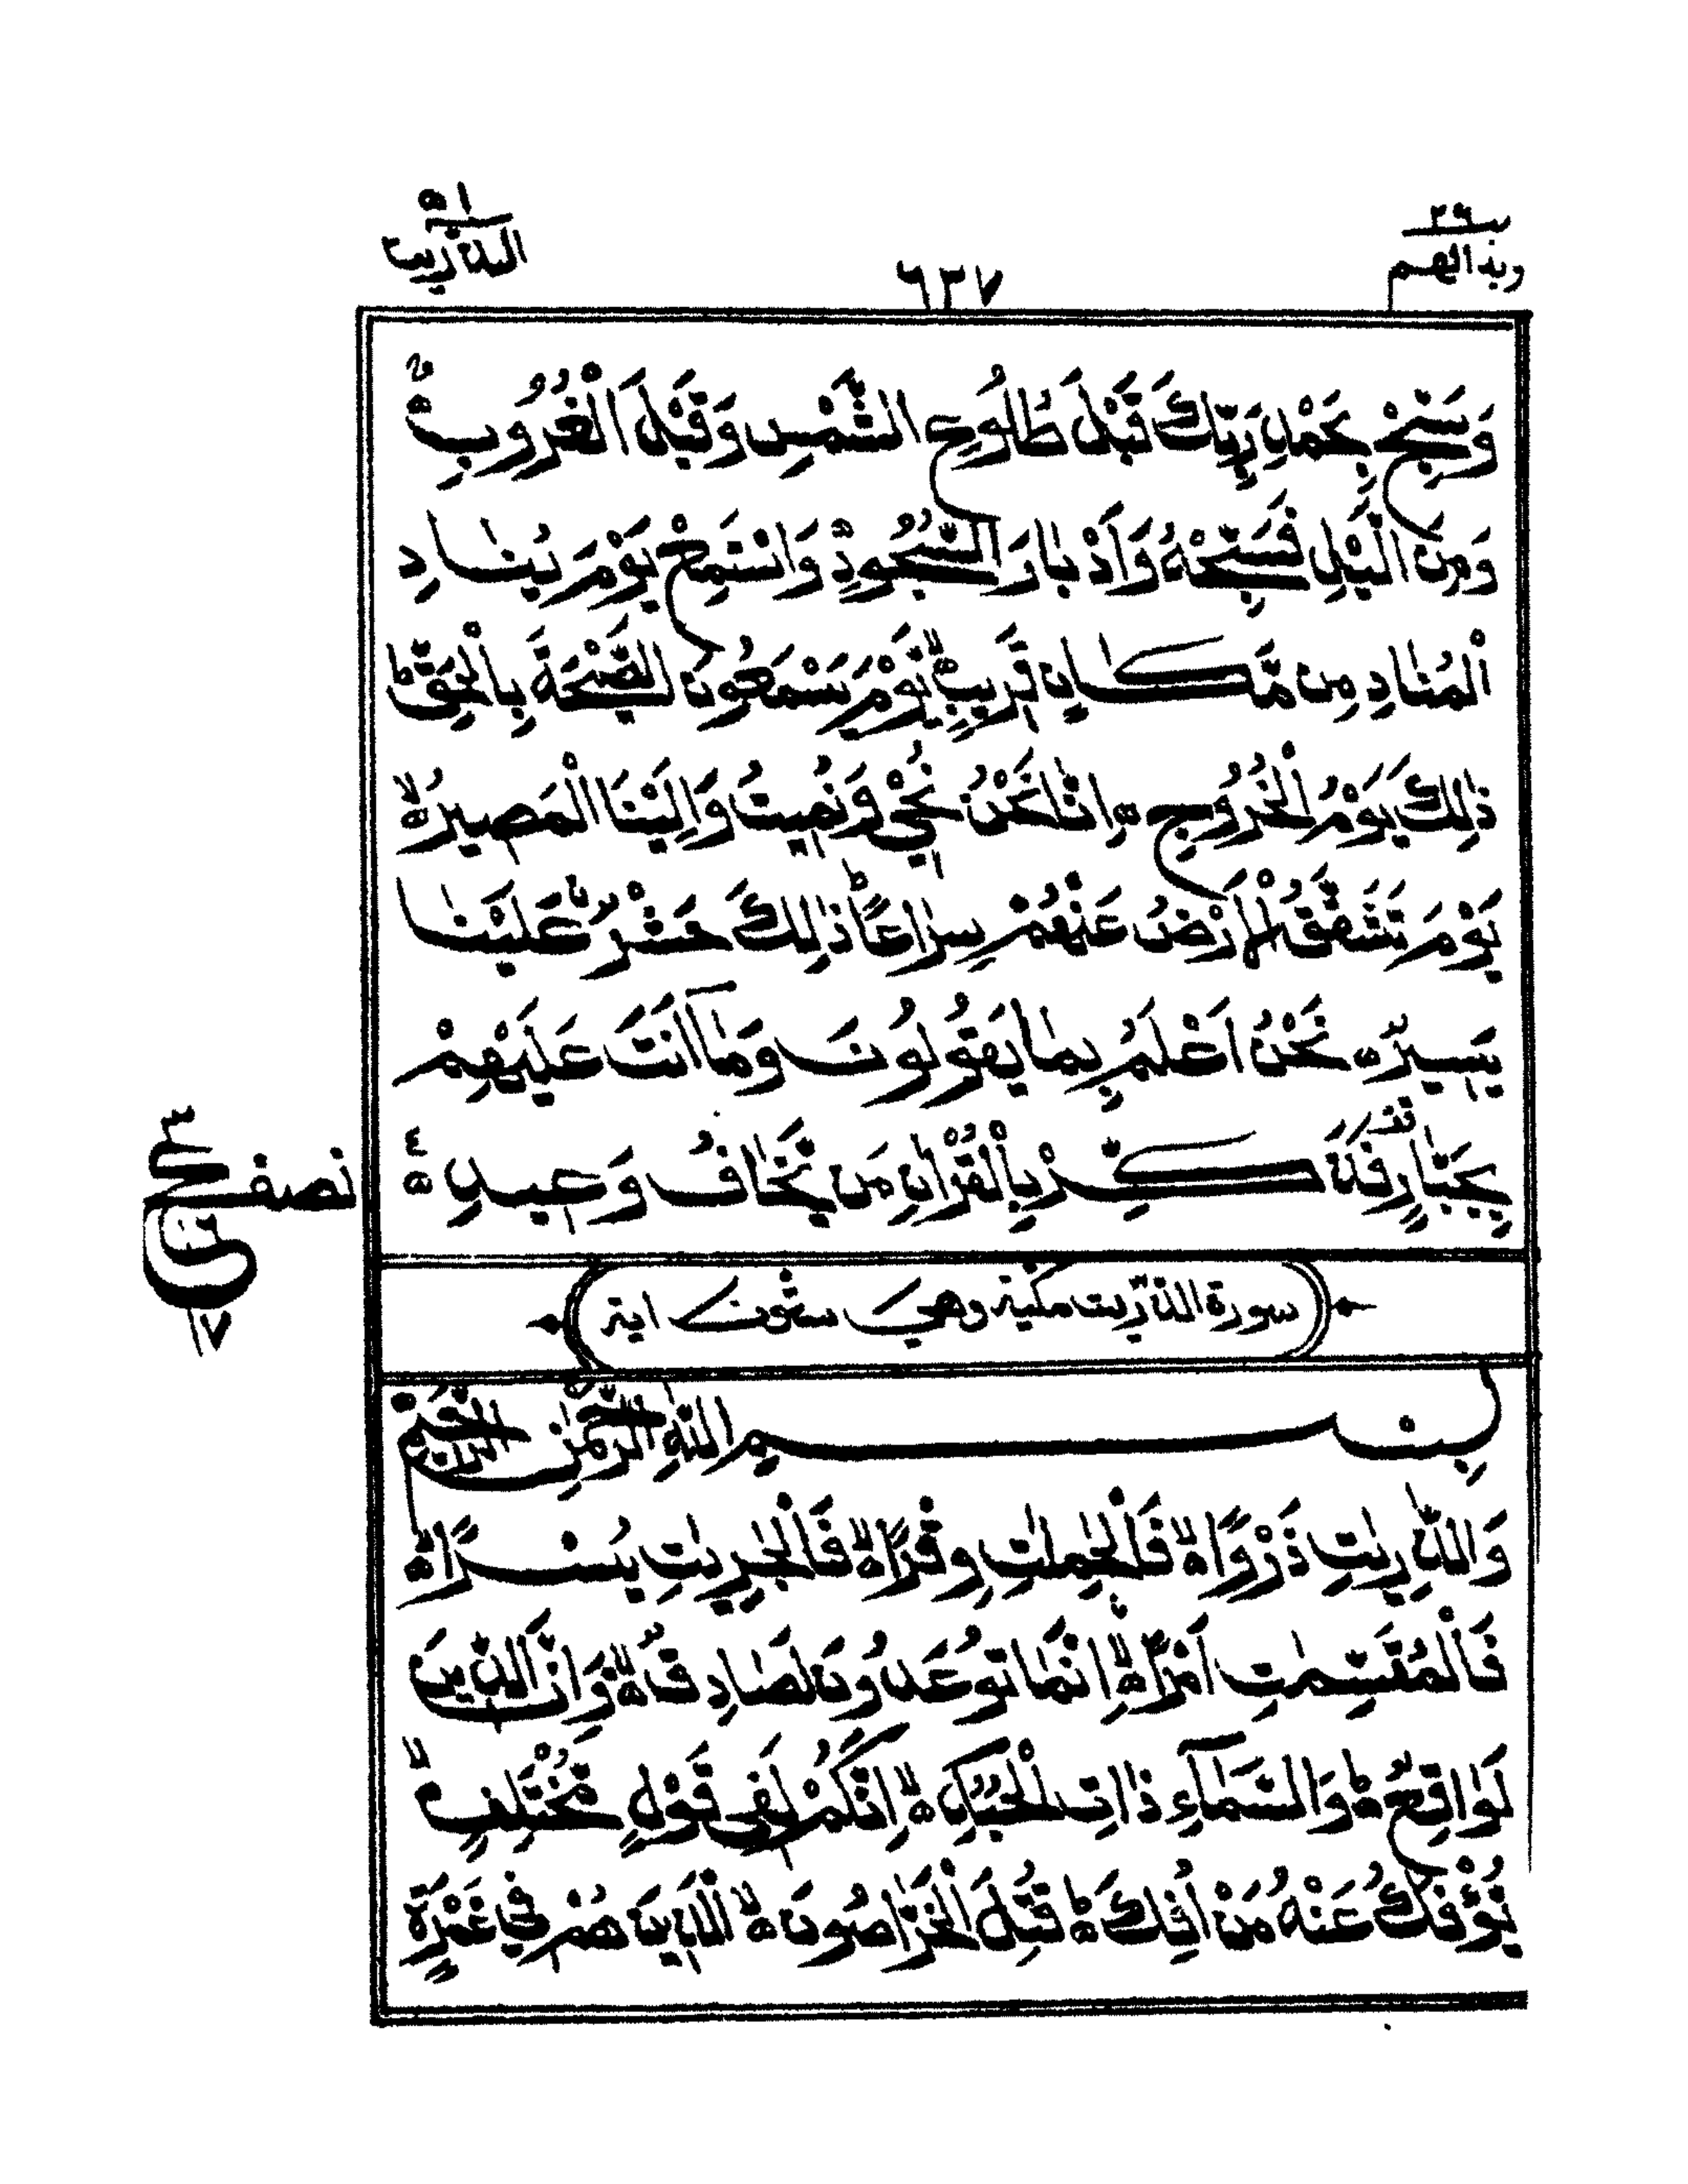 الذّٰريٰت ٥١
٦٣٧
٢٦
وَسَبِّحْ بِحَمْدِ رَبِّكَ قَبْلَ طُلُوْعِ الشَّمْسِ وَقَبْلَ الْغُرُوْبِ ۚ
وَمِنَ الَّيْلِ فَسَبِّحْهُ وَاَدْبَارَ السُّجُوْدِ وَاسْتَمِعْ يَوْمَ يُنَادِ
الْمُنَادِ مِنْ مَّكَانٍ قَرِيْبٍ ۙ يَّوْمَ يَسْمَعُوْنَ الصَّيْحَةَ بِالْحَقِّ ؕ
ذٰلِكَ يَوْمُ الْخُرُوْجِ ۝ اِنَّا نَحْنُ نُحْيٖ وَنُمِيْتُ وَاِلَيْنَا الْمَصِيْرُ ۝ ۙ
يَوْمَ تَشَقَّقُ الْاَرْضُ عَنْهُمْ سِرَاعًا ؕ ذٰلِكَ حَشْرٌ عَلَيْنَا
يَسِيْرٌ ۝ نَحْنُ اَعْلَمُ بِمَا يَقُوْلُوْنَ وَمَآ اَنْتَ عَلَيْهِمْ
بِجَبَّارٍ ۟ فَذَكِّرْ بِالْقُرْاٰنِ مَنْ يَّخَافُ وَعِيْدِ ۝ ع
نصف
٣
ع
١٦
١٧
سورة الذّٰريٰت مكية وهي ستون اية
بِسْمِ اللّٰهِ الرَّحْمٰنِ الرَّحِيْمِ
وَالذّٰرِيٰتِ ذَرْوًا ۝ ۙ فَالْحٰمِلٰتِ وِقْرًا ۝ ۙ فَالْجٰرِيٰتِ يُسْرًا ۝ ۙ
فَالْمُقَسِّمٰتِ اَمْرًا ۝ ۙ اِنَّمَا تُوْعَدُوْنَ لَصَادِقٌ ۝ ۙ وَّاِنَّ الدِّيْنَ
لَوَاقِعٌ ۝ ؕ وَالسَّمَآءِ ذَاتِ الْحُبُكِ ۝ ۙ اِنَّكُمْ لَفِيْ قَوْلٍ مُّخْتَلِفٍ ۙ
يُّؤْفَكُ عَنْهُ مَنْ اُفِكَ ۝ ؕ قُتِلَ الْخَرّٰصُوْنَ ۝ ۙ الَّذِيْنَ هُمْ فِيْ غَمْرَةٍ